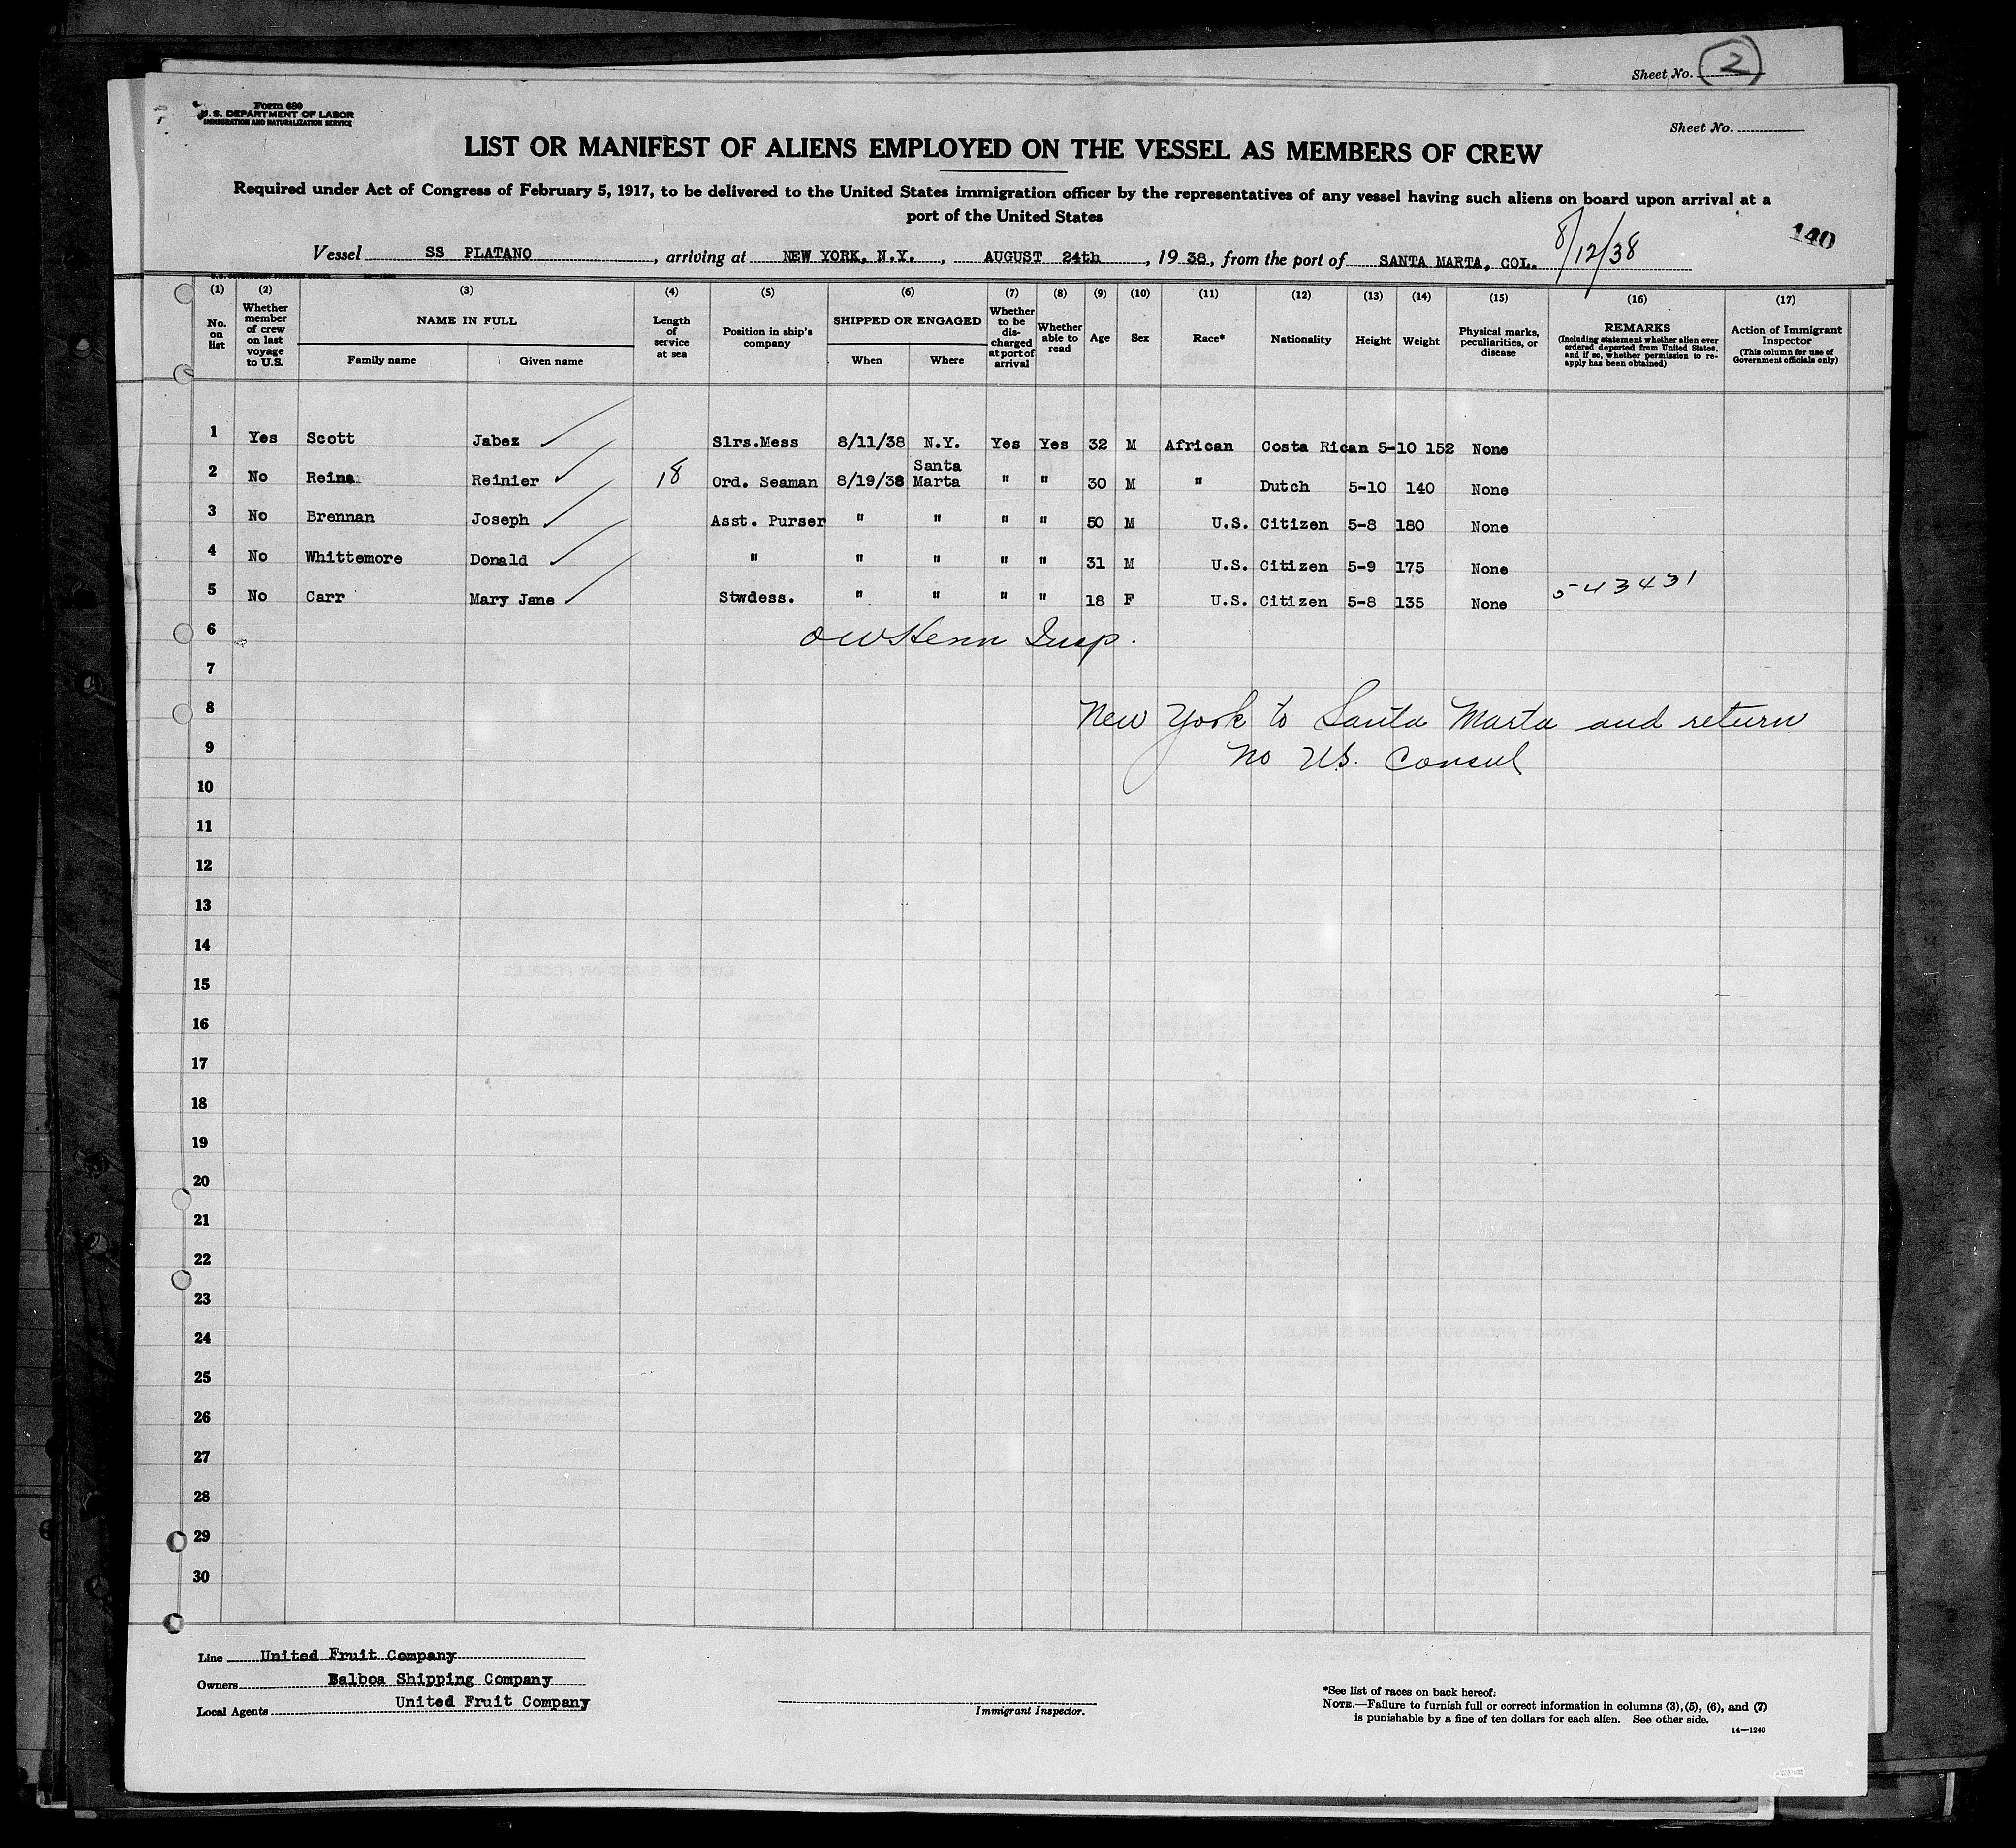 Sheet No. 2
Form 680
U. S. DEPARTMENT OF LABOR
IMMIGRATION AND NATURALIZATION SERVICE
Sheet No.
LIST OR MANIFEST OF ALIENS EMPLOYED ON THE VESSEL AS MEMBERS OF CREW
Required under Act of Congress of February 5, 1917, to be delivered to the United States immigration officer by the representatives of any vessel having such aliens on board upon arrival at a
port of the United States
140
8/12/38
Vessel SS PLATANO, arriving at NEW YORK, N.Y., AUGUST 24th, 1938, from the port of SANTA MARTA, COL.
(1) (2) (3) (4) (5) (6) (7) (8) (9) (10) (11) (12) (13) (14) (15) (16) (17)
No. on list
Whether member of crew on last voyage to U.S.
NAME IN FULL
Family name
Given name
Length of service at sea
Position in ship's company
SHIPPED OR ENGAGED
When
Where
Whether to be discharged at port of arrival
Whether able to read
Age
Sex
Race*
Nationality
Height
Weight
Physical marks, peculiarities, or disease
REMARKS
(Including statement whether alien ever ordered deported from United States, and if so, whether permission to reapply has been obtained)
Action of Immigrant Inspector
(This column for use of Government officials only)
1 Yes Scott Jabez Slrs.Mess 8/11/38 N.Y. Yes Yes 32 M African Costa Rican 5-10 152 None
2 No Reina Reinier 18 Ord. Seaman 8/19/38 Santa Marta " " 30 M " Dutch 5-10 140 None
3 No Brennan Joseph Asst. Purser " " " " 50 M U.S. Citizen 5-8 180 None
4 No Whittemore Donald " " " " " 31 M U.S. Citizen 5-9 175 None
5 No Carr Mary Jane Stwdess. " " " " 18 F U.S. Citizen 5-8 135 None 543431
6
OW Henn Insp.
7
8
New York to Santa Marta and return
9
No US. Consul
10
11
12
13
14
15
16
17
18
19
20
21
22
23
24
25
26
27
28
29
30
Line United Fruit Company
Owners Balboa Shipping Company
Local Agents United Fruit Company
Immigrant Inspector.
*See list of races on back hereof.
NOTE.—Failure to furnish full or correct information in columns (3), (5), (6), and (7)
is punishable by a fine of ten dollars for each alien. See other side.
14—1240